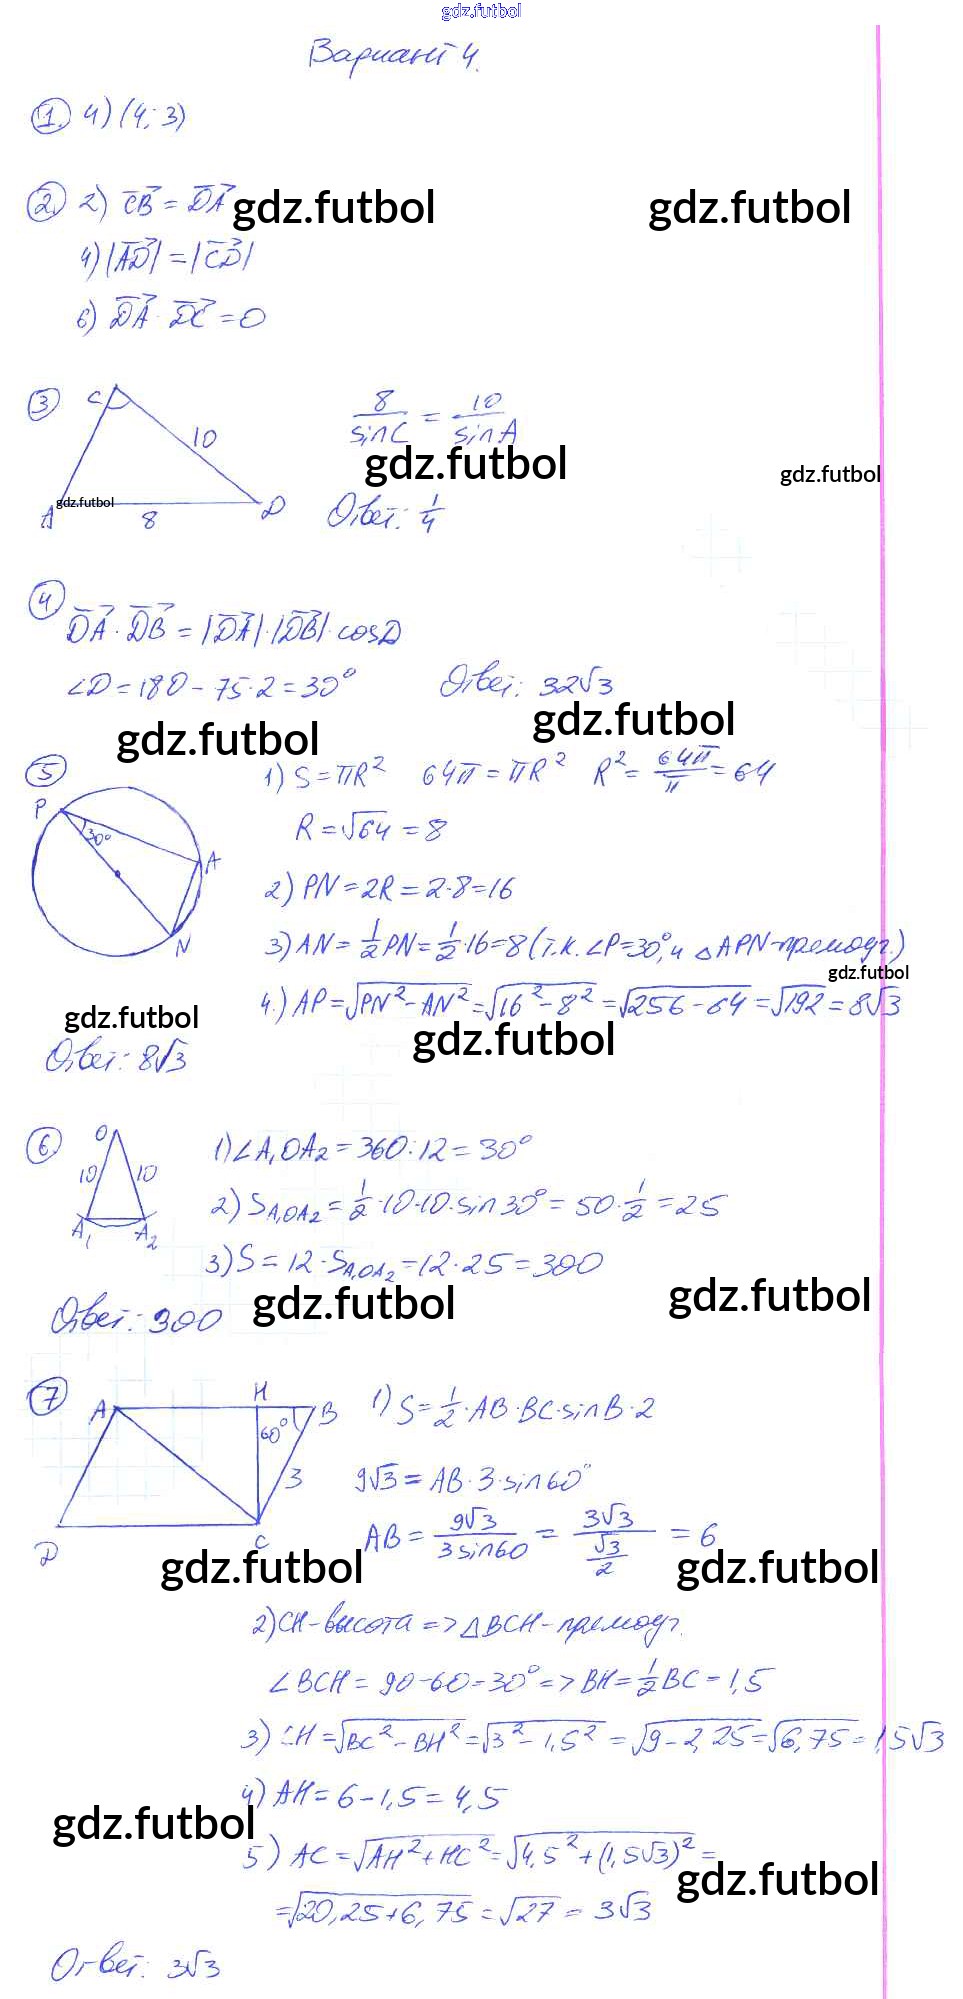 gdz.futbol
Вариант 4.
1. 4) (4; 3)
2. 2) CB = DA gdz.futbol gdz.futbol
4) |AD| = |CD|
6) DA · DC = 0
3 C 10 A 8 D 8/sinC = 10/sinA
gdz.futbol gdz.futbol
gdz.futbol
Ответ: 1/4
4 DA · DB = |DA| · |DB| · cosD
∠D = 180 - 75·2 = 30° Ответ: 32√3
gdz.futbol gdz.futbol
5 1) S = πR² 64π = πR² R² = 64π/π = 64
P 30° A N
R = √64 = 8
2) PN = 2R = 2·8 = 16
3) AN = 1/2 PN = 1/2 · 16 = 8 (т.к. ∠P = 30°, и △APN - прямоуг.)
gdz.futbol
4.) AP = √PN² - AN² = √16² - 8² = √256 - 64 = √192 = 8√3
gdz.futbol gdz.futbol
Ответ: 8√3
6. O 10 10 A₁ A₂
1) ∠A₁OA₂ = 360 : 12 = 30°
2) S A₁OA₂ = 1/2 · 10 · 10 · sin30° = 50 · 1/2 = 25
3) S = 12 · S A₁OA₂ = 12 · 25 = 300
Ответ: 300 gdz.futbol gdz.futbol
7 A H B 60° 3 D C
1) S = 1/2 · AB · BC · sinB · 2
9√3 = AB · 3 · sin60°
AB = 9√3/3sin60 = 3√3/(√3/2) = 6
gdz.futbol gdz.futbol
2) CH - высота => △BCH - прямоуг.
∠BCH = 90 - 60 = 30° => BH = 1/2 BC = 1,5
3) CH = √BC² - BH² = √3² - 1,5² = √9 - 2,25 = √6,75 = 1,5√3
4) AH = 6 - 1,5 = 4,5
gdz.futbol
5) AC = √AH² + HC² = √4,5² + (1,5√3)² =
gdz.futbol
= √20,25 + 6,75 = √27 = 3√3
Ответ: 3√3